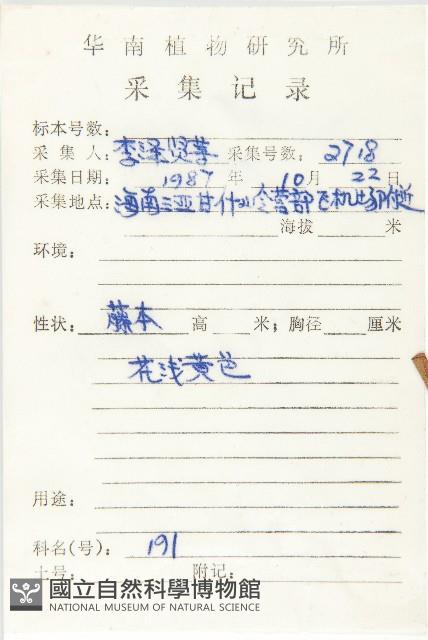 华南植物研究所
采集记录
标本号数:
采集人: 李泽贤等 采集号数: 2718
采集日期: 1987 年 10月 22日
采集地点: 海南三亚甘什岭营部飞机场附近
海拔 米
环境:
性状: 藤本 高 米; 胸径 厘米
花浅黄色
用途:
科名(号): 191
土号: 附记:
國立自然科學博物館
NATIONAL MUSEUM OF NATURAL SCIENCE